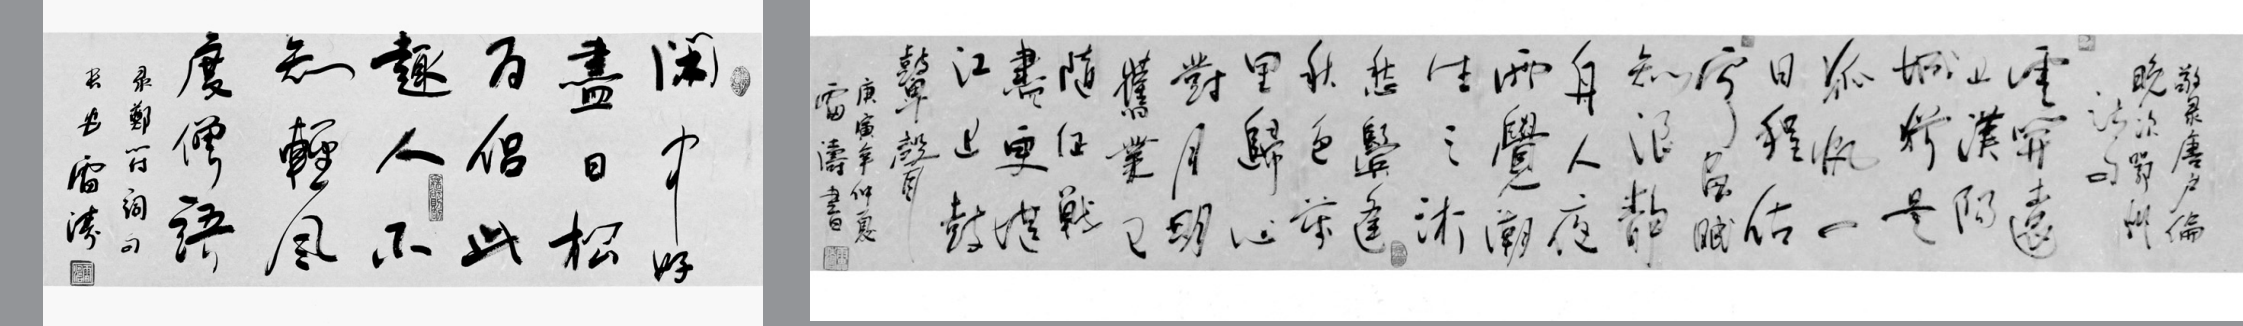 閑中好
盡日松
为侣此
趣人不
知輕風
度僧語
录鄭符詞句
長安雷濤
敬录唐卢倫
晚次鄂州
詩句
雲開遠
見漢陽
城猶是
孤帆一
日程估
客昼眠
知浪静
舟人夜
語覺潮
生三湘
愁鬢逢
秋色萬
里歸心
對月明
舊業已
隨征戰
盡更堪
江上鼓
鼙聲
庚寅年仲夏
雷濤書